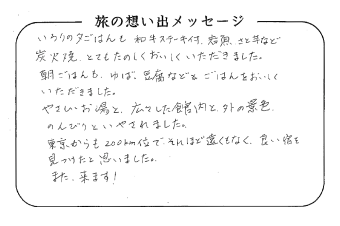 旅の想い出メッセージ
いろりの夕ごはんも 和牛ステーキ付、岩魚、さと芋など
炭火焼、とてもたのしくおいしくいただきました。
朝ごはんも、ゆば、豆腐などとごはんをおいしく
いただきました。
やさしいお湯と、広々した館内と、外の景色、
のんびりといやされました。
東京からも200km位で、それほど遠くもなく、良い宿を
見つけたと思いました。
また、来ます!